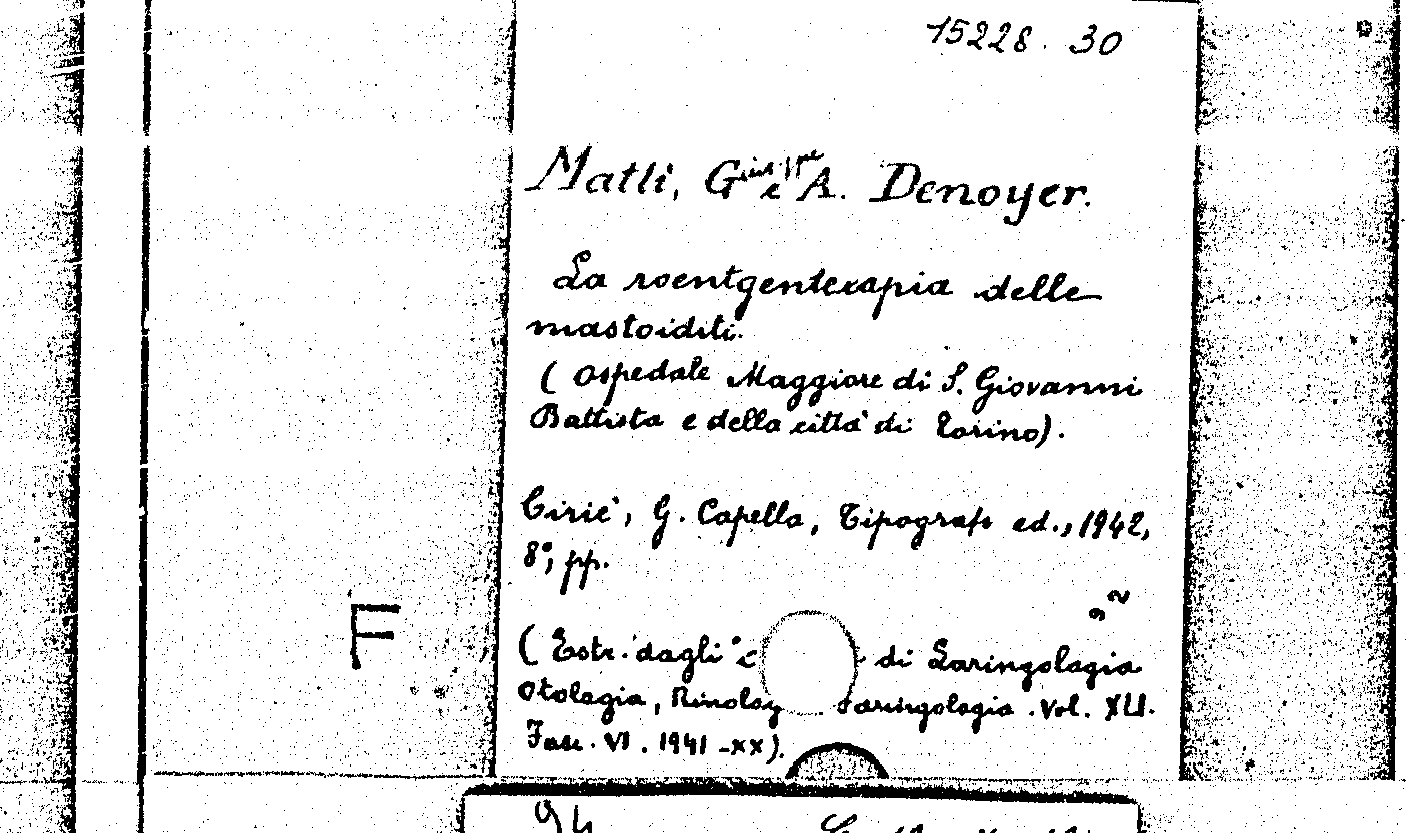 15228. 30
Matli, Giuseppe e A. Denoyer.
La roentgenterapia delle
mastoiditi.
( Ospedale Maggiore di S. Giovanni
Battista e della città di Torino).
Ciriè, G. Capella, Tipografo ed., 1942,
8°, pp.
F
( Estr. dagli di Laringologia
Otologia, Rinolog Faringologia. Vol. XLI.
Fasc. VI. 1941 -XX).
94